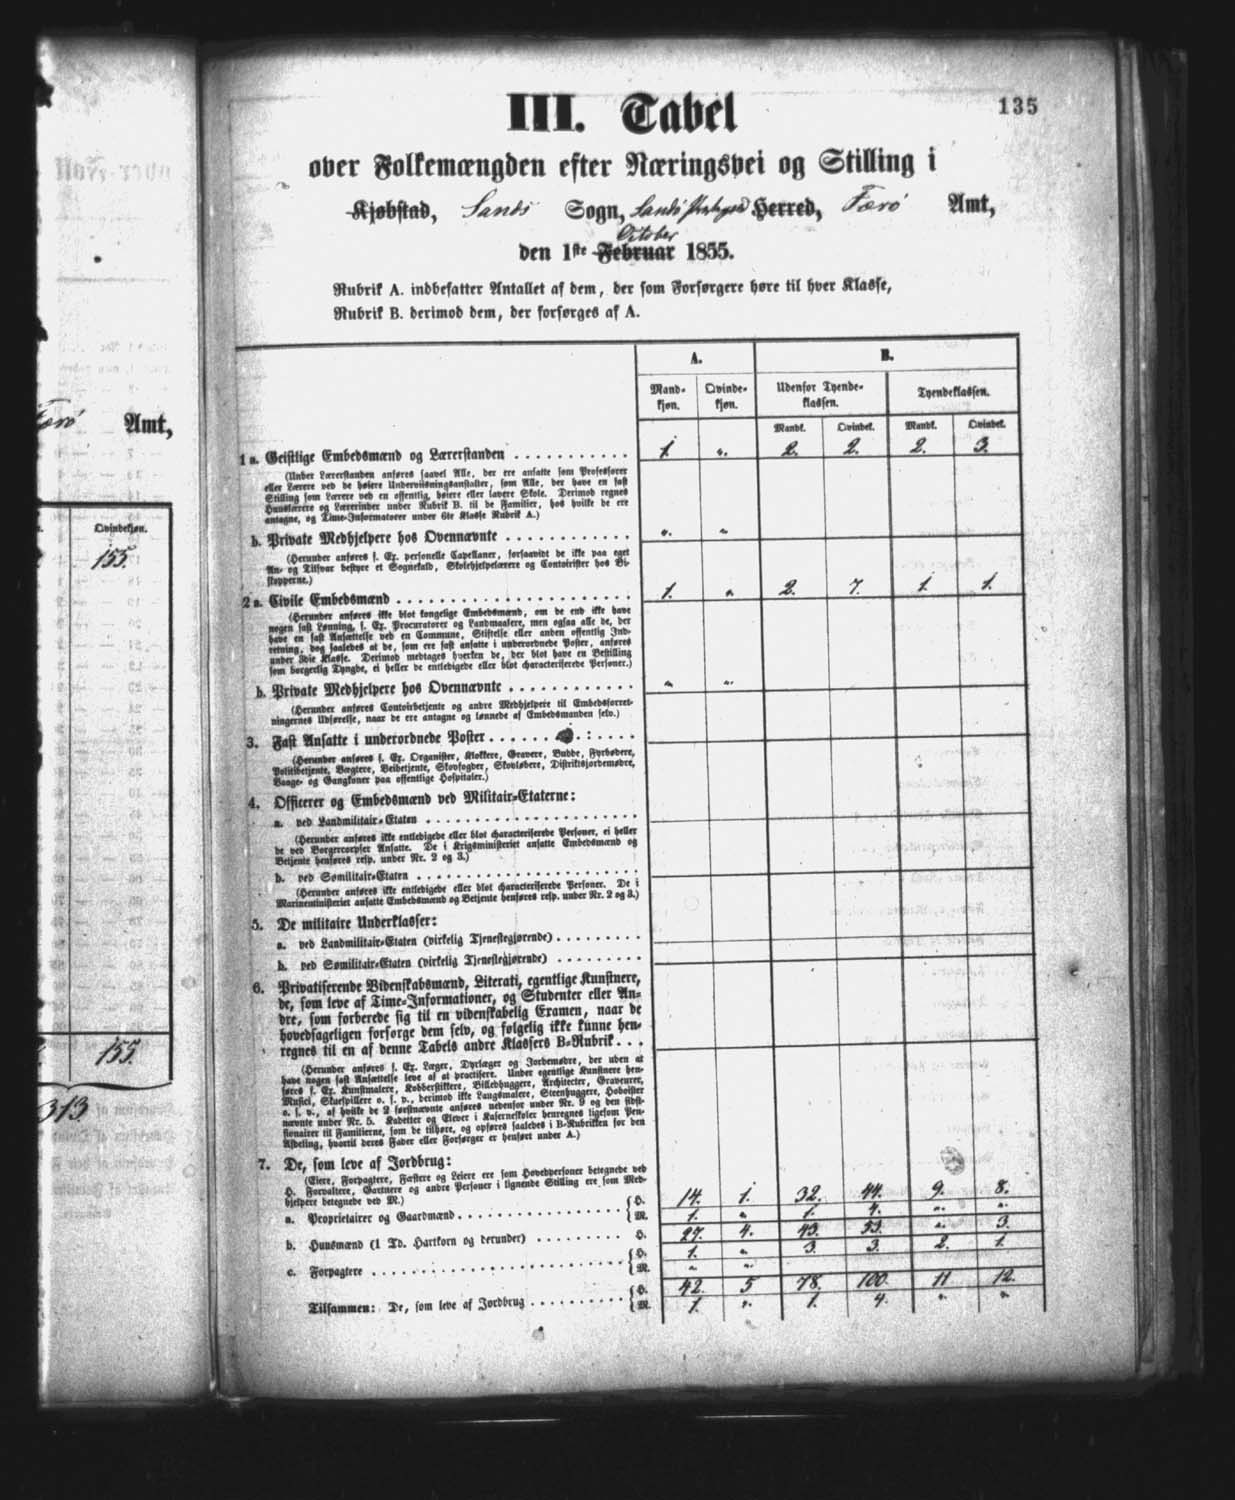 135
III. Tabel
over Folkemængden efter Næringsvei og Stilling i
Kjøbstad, Sands Sogn, Sandø Herred, Færø Amt,
October
den 1ste Februar 1855.
Rubrik A. indbefatter Antallet af dem, der som Forsørgere høre til hver Klasse,
Rubrik B. derimod dem, der forsørges af A.
A. B.
Mand- Qvinde- Udenfor Tyende- Tyendeklassen.
kjøn. kjøn. klassen.
Mandk. Qvindek. Mandk. Qvindek.
1 a. Geistlige Embedsmænd og Lærerstanden 1. „ 2. 2. 2. 3.
(Under Lærerstanden anføres saavel Alle, der ere ansatte som Professorer
eller Lærere ved de høiere Underviisningsanstalter, som Alle, der have en fast
Stilling som Lærere ved en offentlig, høiere eller lavere Skole. Derimod regnes
Huuslærere og Lærerinder under Rubrik B. til de Familier, hos hvilke de ere
antagne, og Time-Informatorer under 6te Klasse Rubrik A.)
b. Private Medhjelpere hos Ovennævnte „ „
(Herunder anføres f. Ex. personelle Capellaner, forsaavidt de ikke paa eget
An- og Tilsvar bestyre et Sognekald, Skolehjelpelærere og Contoirister hos Bi-
skopperne.)
2 a. Civile Embedsmænd 1. „ 2. 7. 1. 1.
(Herunder anføres ikke blot kongelige Embedsmænd, om de end ikke have
nogen fast Lønning, f. Ex. Procuratorer og Landmaalere, men ogsaa alle de, der
have en fast Ansættelse ved en Commune, Stiftelse eller anden offentlig Ind-
retning, dog saaledes at de, som ere fast ansatte i underordnede Poster, anføres
under 3die Klasse. Derimod medtages hverken de, der blot have en Bestilling
som borgerlig Tyngde, ei heller de entledigede eller blot characteriserede Personer.)
b. Private Medhjelpere hos Ovennævnte „ „
(Herunder anføres Contoirbetjente og andre Medhjelpere til Embedsforret-
ningernes Udførelse, naar de ere antagne og lønnede af Embedsmanden selv.)
3. Fast Ansatte i underordnede Poster
(Herunder anføres f. Ex. Organister, Klokkere, Gravere, Budde, Fyrbødere,
Politibetjente, Vægtere, Veibetjente, Skovfogder, Skovløbere, Distriktsjordemødre,
Vaage- og Gangkoner paa offentlige Hospitaler.)
4. Officerer og Embedsmænd ved Militair-Etaterne:
a. ved Landmilitair-Etaten
(Herunder anføres ikke entledigede eller blot characteriserede Personer, ei heller
de ved Borgercorpser Ansatte. De i Krigsministeriet ansatte Embedsmænd og
Betjente henføres resp. under Nr. 2 og 3.)
b. ved Sømilitair-Etaten
(Herunder anføres ikke entledigede eller blot characteriserede Personer. De i
Marineministeriet ansatte Embedsmænd og Betjente henføres resp. under Nr. 2 og 3.)
5. De militaire Underklasser:
a. ved Landmilitair-Etaten (virkelig Tjenestegjørende)
b. ved Sømilitair-Etaten (virkelig Tjenestegjørende)
6. Privatiserende Videnskabsmænd, Literati, egentlige Kunstnere,
de, som leve af Time-Informationer, og Studenter eller An-
dre, som forberede sig til en videnskabelig Examen, naar de
hovedsageligen forsørge dem selv, og følgelig ikke kunne hen-
regnes til en af denne Tabels andre Klassers B-Rubrik
(Herunder anføres f. Ex. Læger, Dyrlæger og Jordemødre, der uden at
have nogen fast Ansættelse leve af at practisere. Under egentlige Kunstnere hen-
føres f. Ex. Kunstmalere, Kobberstikkere, Billedhuggere, Architecter, Graveurer,
Musici, Skuespillere o. s. v., derimod ikke Laugsmalere, Steenhuggere, Hoboister
o. s. v., af hvilke de 2 førstnævnte anføres nedenfor under Nr. 9 og den sidst-
nævnte under Nr. 5. Kadetter og Elever i Kaserneskoler henregnes ligesom Pen-
sionairer til Familierne, som de tilhøre, og opføres saaledes i B-Rubrikken for den
Afdeling, hvortil deres Fader eller Forsørger er henført under A.)
7. De, som leve af Jordbrug:
(Eiere, Forpagtere, Fæstere og Leiere ere som Hovedpersoner betegnede ved
H. Forvaltere, Gartnere og andre Personer i lignende Stilling ere som Med-
hjelpere betegnede ved M.)
a. Proprietairer og Gaardmænd H. 14. 1. 32. 44. 9. 8.
M. 1. „ 1. 4. „ „
b. Huusmænd (1 Td. Hartkorn og derunder) H. 27. 4. 43. 53. „ 3.
c. Forpagtere H. 1. „ 3. 3. 2. 1.
M. „ „
Tilsammen: De, som leve af Jordbrug H. 42. 5 78. 100. 11 12.
M. 1. „ 1. 4. „ „
Færø Amt,
Qvindekjøn.
155.
155.
313